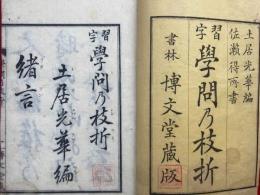 土居光華編
佐瀬得所書
習字
學問乃枝折
書林 博文堂藏版
習字
學問乃枝折
土居光華編
緒言